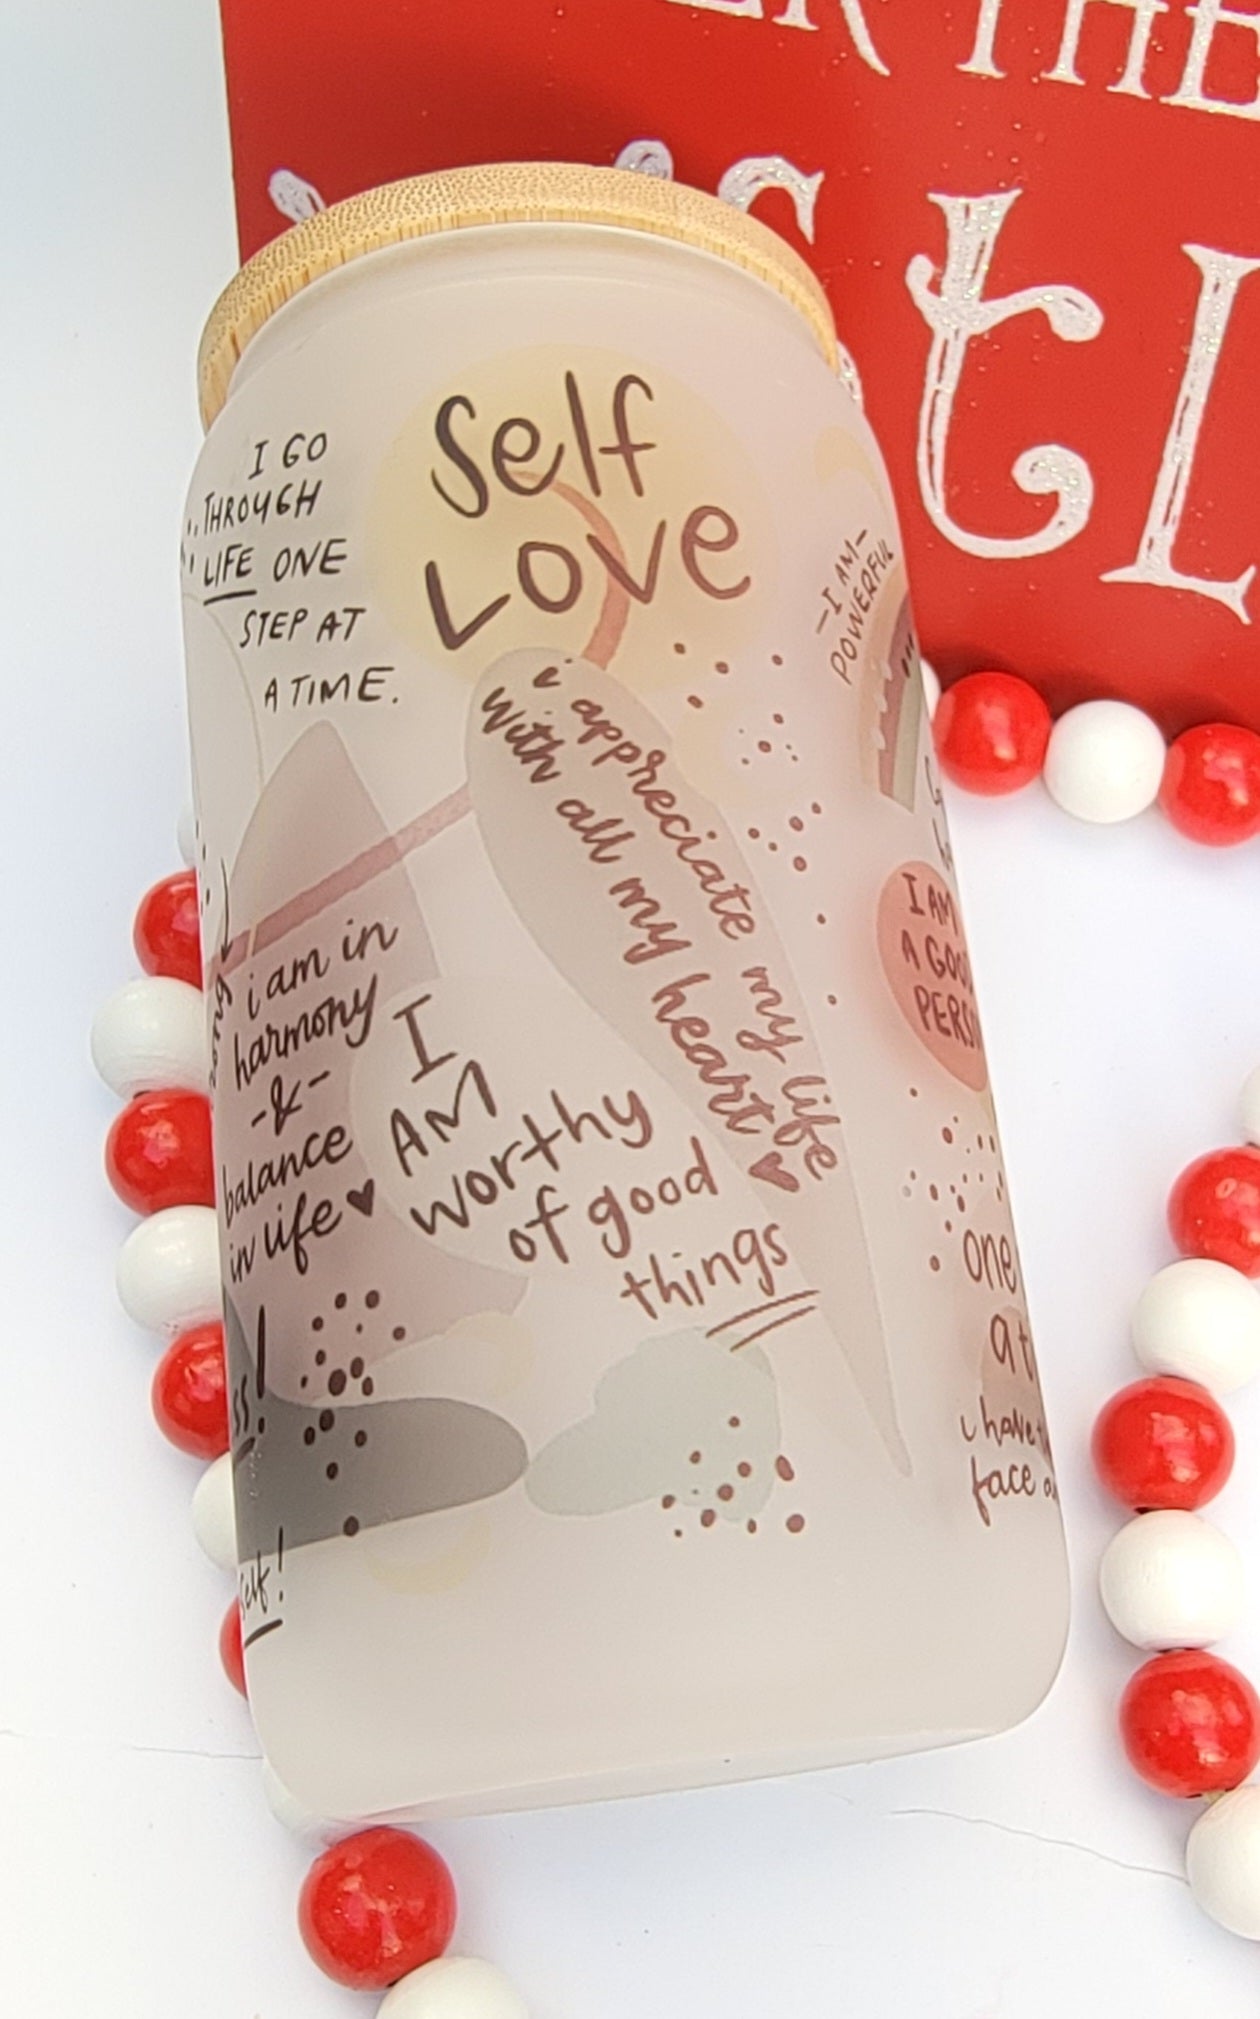 THE
Self
LOVE
I GO
THROUGH
LIFE ONE
STEP AT
A TIME.
-I AM-
POWERFUL
i appreciate my life
with all my heart
I AM
A GOOD
i am in
harmony
-&-
balance
in life
I
AM
worthy
of good
things
one
i have
face